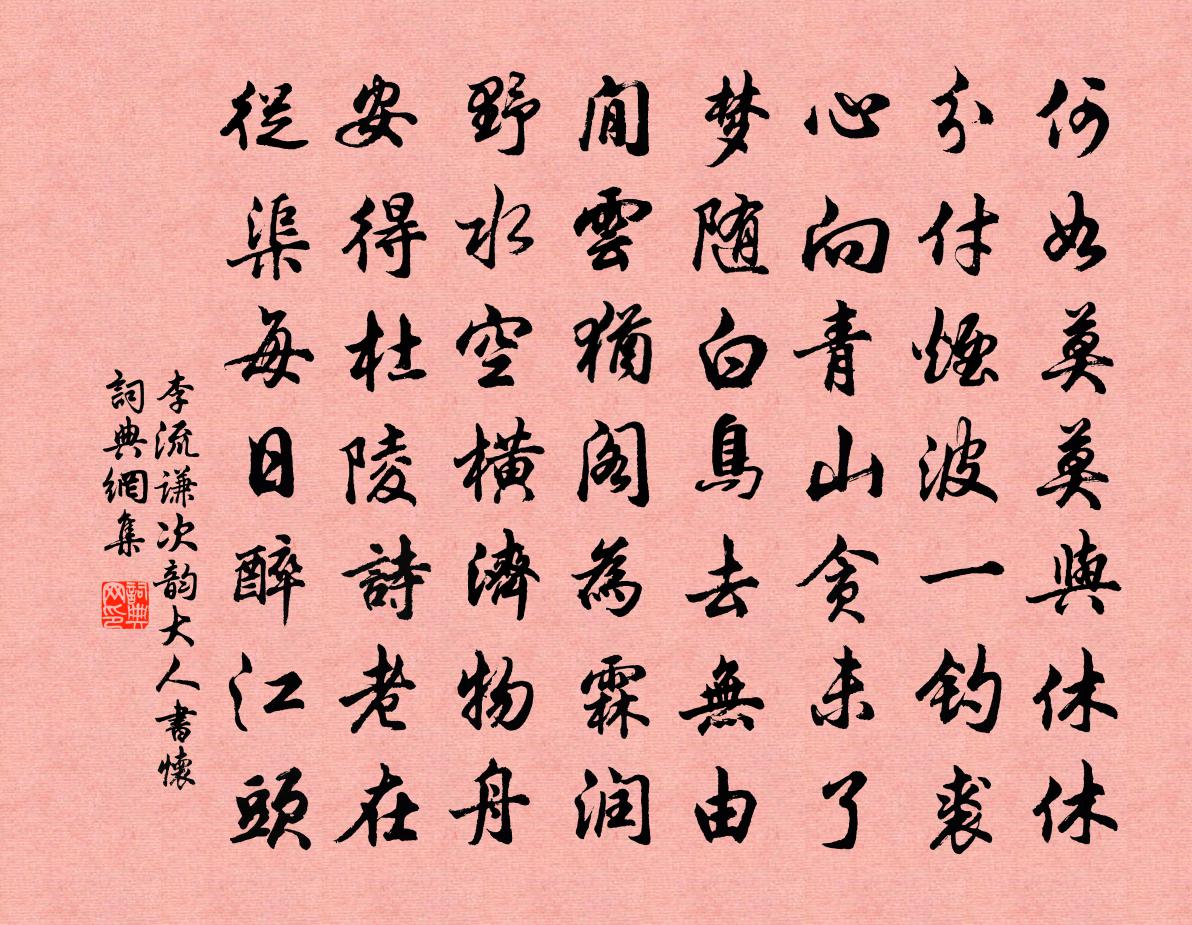 何如莫莫與休休
分付煙波一釣裘
心向青山貪未了
梦随白鳥去無由
閒雲猶阁為霖润
野水空橫濟物舟
安得杜陵詩老在
從渠每日醉江頭
李流謙次韵大人書懷
詞典網集
詞典网印